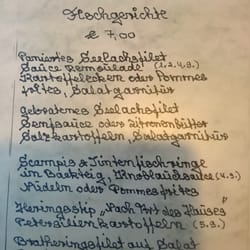 Fischgerichte
€ 7,00
Paniertes Seelachsfilet
Sauce Remoulade (1,2,4,9.)
Kartoffelecken oder Pommes
frites, Salatgarnitur
gebratenes Seelachsfilet
Senfsauce oder Zitronenbutter
Salzkartoffeln, Salatgarnitur
Scampis & Tintenfischringe
im Backteig, Knoblauchsauce (4.9.)
Nudeln oder Pommes frites
Heringsstip "Nach Art des Hauses"
Petersilienkartoffeln (5.9.)
Bratheringsfilet auf Salat